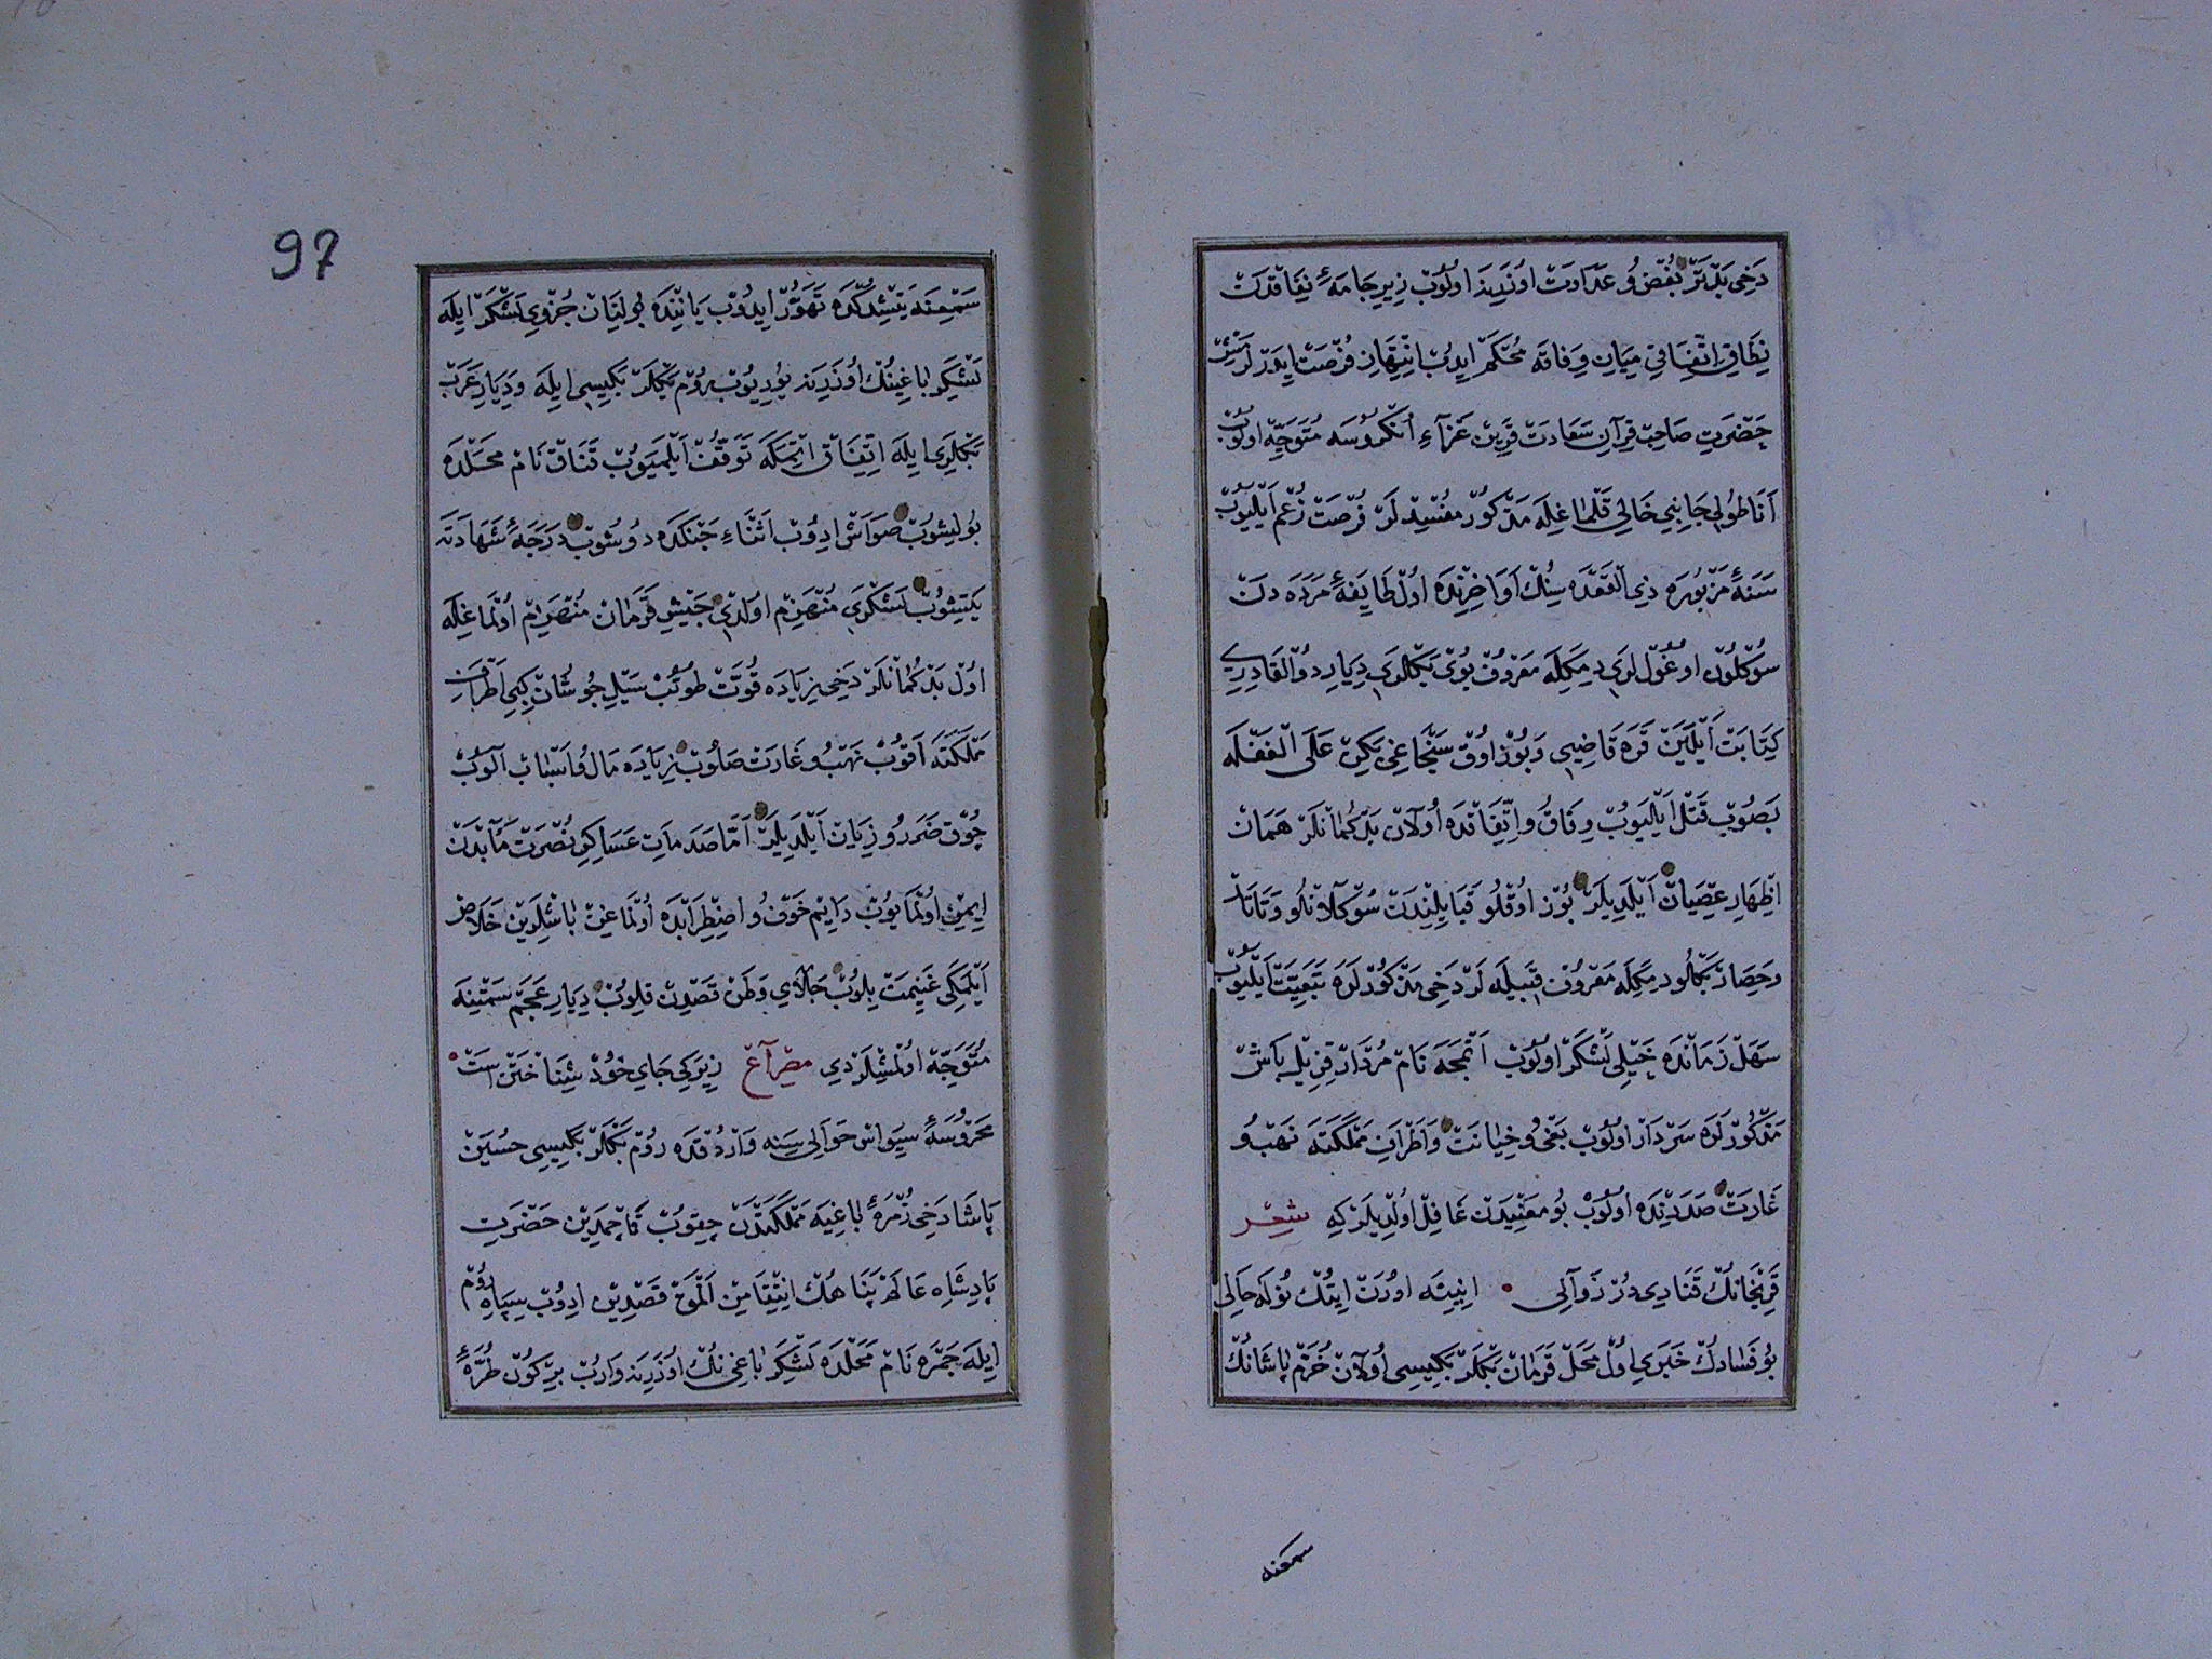 دَخِى بَدْتَرْ بُغْض وُ عَدَاوَتْ اوُزَرِينَه اوُلُوبْ زِيرِ جَامَهٔ نِفَاقْدَنْ
نِطَاقِ اِتِّفَاقِى مِيَانِ وِفَاقَه مُحْكَمْ ايدُبْ اِنْتِهَازِ فُرْصَتْ ايدَرْلَرْمِشْ
حَضْرَتِ صَاحِبْ قِرَانِ سَعَادَتْ قَرِينْ غَزَآءِ اُنْكُرُوسَه مُتَوَجِّه اولُوبْ
اَنَاطُولِى جَانِبِى خَالِى قَلْمَاغِلَه مَذْكُورْ مُفْسِدْلَرْ فُرْصَتْ زُعْم اَيْلَيُوبْ
سَنَهٔ مَزْبُورَه ذِى الْقَعْدَه سِنُكْ اَوَاخِرِنْدَه اوُلْ طَايِفَهٔ مَرَدَه دَنْ
سُوكْلُونْ اوُغُولْلَرِى دِمَكِلَه مَعْرُوفْ بُوىْ بَكْلَرِى دِيَارِ ذُو الْقَادِرِى
كِتَابَتْ اَيْلَيَنْ قَرَه قَاضِيى وَ بُوزْ اوُقْ سَنْجَاغِى بَكِنْ عَلَى الْغَفْلَه
بَصُوبْ قَتْل اَيْلَيُوبْ وِفَاقْ وُ اِتِّفَاقْدَه اُولَانْ بَدْكُمَانْلَرْ هَمَانْ
اِظْهَارِ عِصْيَانْ اَيْلَدِيلَرْ بُوزْ اُوقْلُو قَبَايِلِنْدَنْ سُوكْلَانْلُو وَ تَاتَارْ
وَ حِصَارْ بَكْلُو دِمَكِلَه مَعْرُوفْ قَبِيلَه لَرْ دَخِى مَذْكُورْلَرَه تَبَعِيَّتْ اَيْلَيُوبْ
سَهَلْ زَمَانْدَه خَيْلِى لَشْكَرْ اوُلُوبْ اَتْمَجَه نَامْ مُرْدَارْ قِزِيلْ بَاشْ
مَذْكُورْلَرَه سَرْدَارْ اوُلُوبْ بَغْى وُ خِيَانَتْ وَ اَطْرَافِ مَمْلَكَتَه نَهْبْ وُ
غَارَتْ صَدَدِنْدَه اوُلُوبْ بُو مَعْنِيدَنْ غَافِلْ اوُلْدِيلَرْ كِه شِعْر
قَرِنْجَانُكْ قَنَادِى دُرْ زَوَالِى • اِنِيشَه اوُرَتْ اِتُكْ تُولَه حَالِى
بُو فَسَادُكْ خَبَرِى اوُلْ مَحَلّ قَرَمَانْ بَكْلَرْبَكِيسِى اوُلَانْ خُرَّمْ پَاشَانُكْ
سمعنه
97
سَمْعِنَه يَتِشْدِكْدَه تَهَوُّرْ ايدُوبْ يَانِنْدَه بُولِنَانْ جُزْوِى لَشْكَرْ ايلَه
لَشْكَرِ بَاغِينُكْ اوُزَرِينَه يُورِيُوبْ رُومْ بَكْلَرْبَكِيسِى ايلَه وَ دِيَارِ عَرَبْ
بَكْلَرِى ايلَه اِتِّفَاقْ اِتْمَكَه تَوَقُّفْ اَيْلَمَيُوبْ قَنَاقْ نَامْ مَحَلْدَه
بُولِشُوبْ صَوَاشْ ادِوُبْ اَثْنَاءِ جَنْكَدَه دُوشُوبْ دَرَجَهٔ شَهَادَتَه
يَتِيشُوبْ لَشْكَرِى مُنْهَزِمْ اوُلْدِى جَيْشِ قَرَمَانْ مُنْهَزِمْ اوُلْمَاغِلَه
اوُلْ بَدْكُمَانْلَرْ دَخِى زِيَادَه قُوَّتْ طُوتُبْ سَيْلِ جُوشَانْ كِبِى اَطْرَافِ
مَمْلَكَتَه اَقُوبْ نَهْبُ و غَارَتْ صَالُوبْ زِيَادَه مَالْ وُ اَسْبَابْ آلُوبْ
چُوقْ ضَرَرْ وُ زِيَانْ اَيْلَدِيلَرْ اَمَّا صَدَمَاتِ عَسَاكِرِ نُصْرَتْ مَآبْدَنْ
ايمِنْ اوُلْمَايُوبْ دَايِمْ خَوْفْ وُ اضْطِرَابْدَه اوُلْمَاغِنْ بَاشْلَرِينْ خَلَاصْ
اَيْلَمَكِى غَنِيمَتْ بِلُوبْ جَلَاىِ وَطَنْ قَصْدِنْ قِلُوبْ دِيَارِ عَجَمْ سَمْتِنَه
مُتَوَجِّه اوُلْمِشْلَرْدِى مِصْرَاعْ زِيرَكِى جَاىِ خُودْ شِنَاخْتَنَ اسْتْ •
مَحْرُوسَهٔ سِيوَاسْ حَوَالِى سِنَه وَارْدُقْدَه رُومْ بَكْلَرْبَكِيسِى حُسَيْنْ
پَاشَا دَخِى زُمْرَهٔ بَاغِيَه مَمْلَكَتْدَنْ چِقُوبْ قَاچْمَدِينْ حَضْرَتِ
پَادِشَاهِ عَالَمْ پَنَاهُكْ اِنْتِقَامِنْ اَلْمَقْ قَصْدِينْ ادِوُبْ سِپَاهِ رُومْ
ايلَه جَمْرَه نَامْ مَحَلْدَه لَشْكَرِ بَاغِى نُكْ اوُزَرِينَه وَارُبْ بِرْ كُونْ طُرَّهٔ